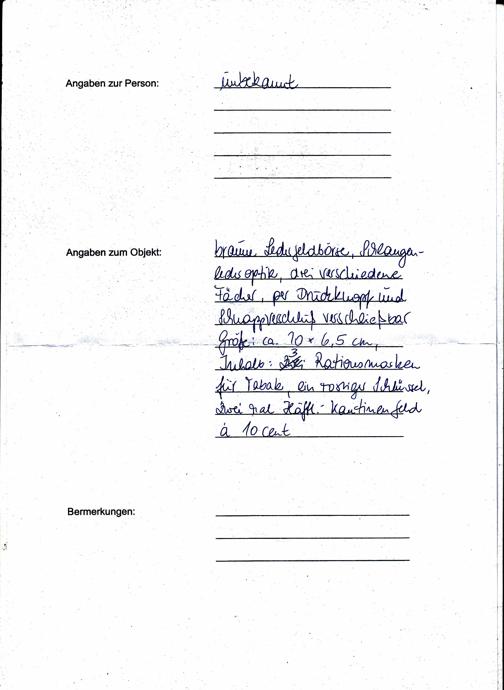 Angaben zur Person:
unbekannt
Angaben zum Objekt:
braune Ledergeldbörse, Schlangen-
lederoptik, drei verschiedene
Fächer, per Druckknopf und
Schnappverschluß verschließbar
Größe: ca. 10 x 6,5 cm,
Inhalt: 3 Rationsmarken
für Tabak, ein rostiger Schlüssel,
zwei mal Häftl.-Kantinengeld
á 10 cent
Bermerkungen: